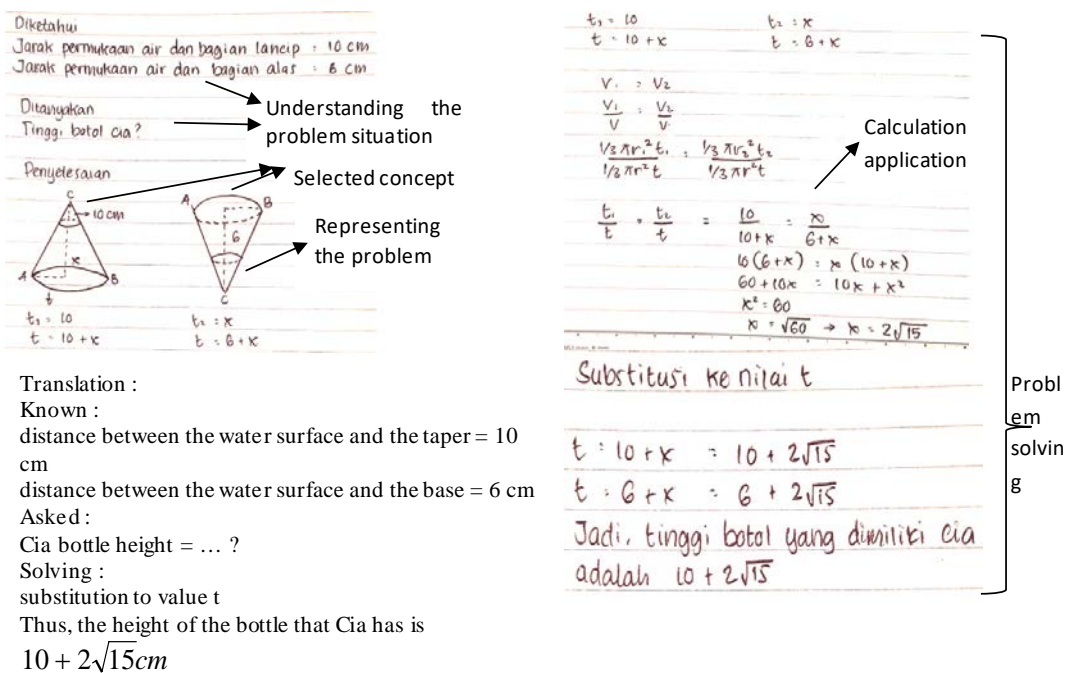 Diketahui
Jarak permukaan air dan bagian lancip : 10 cm
Jarak permukaan air dan bagian alas : 6 cm
Ditanyakan
Tinggi botol cia?
Penyelesaian
Understanding the
problem situation
Selected concept
Representing
the problem
C
10 cm
x
A
B
t
A
B
6
C
t₁ = 10
t = 10 + x
t₂ = x
t = 6 + x
Translation :
Known :
distance between the water surface and the taper = 10
cm
distance between the water surface and the base = 6 cm
Asked :
Cia bottle height = … ?
Solving :
substitution to value t
Thus, the height of the bottle that Cia has is
10 + 2√15cm
t₁ = 10
t = 10 + x
t₂ = x
t = 6 + x
V₁ = V₂
V₁/V = V₂/V
1/3 πr₁²t₁ / 1/3 πr²t = 1/3 πr₂²t₂ / 1/3 πr²t
t₁/t = t₂/t = 10/10+x = x/6+x
10(6+x) = x(10+x)
60 + 10x = 10x + x²
x² = 60
x = √60 → x = 2√15
Calculation
application
Substitusi ke nilai t
t = 10 + x = 10 + 2√15
t = 6 + x = 6 + 2√15
Jadi, tinggi botol yang dimiliki cia
adalah 10 + 2√15
Probl
em
solvin
g